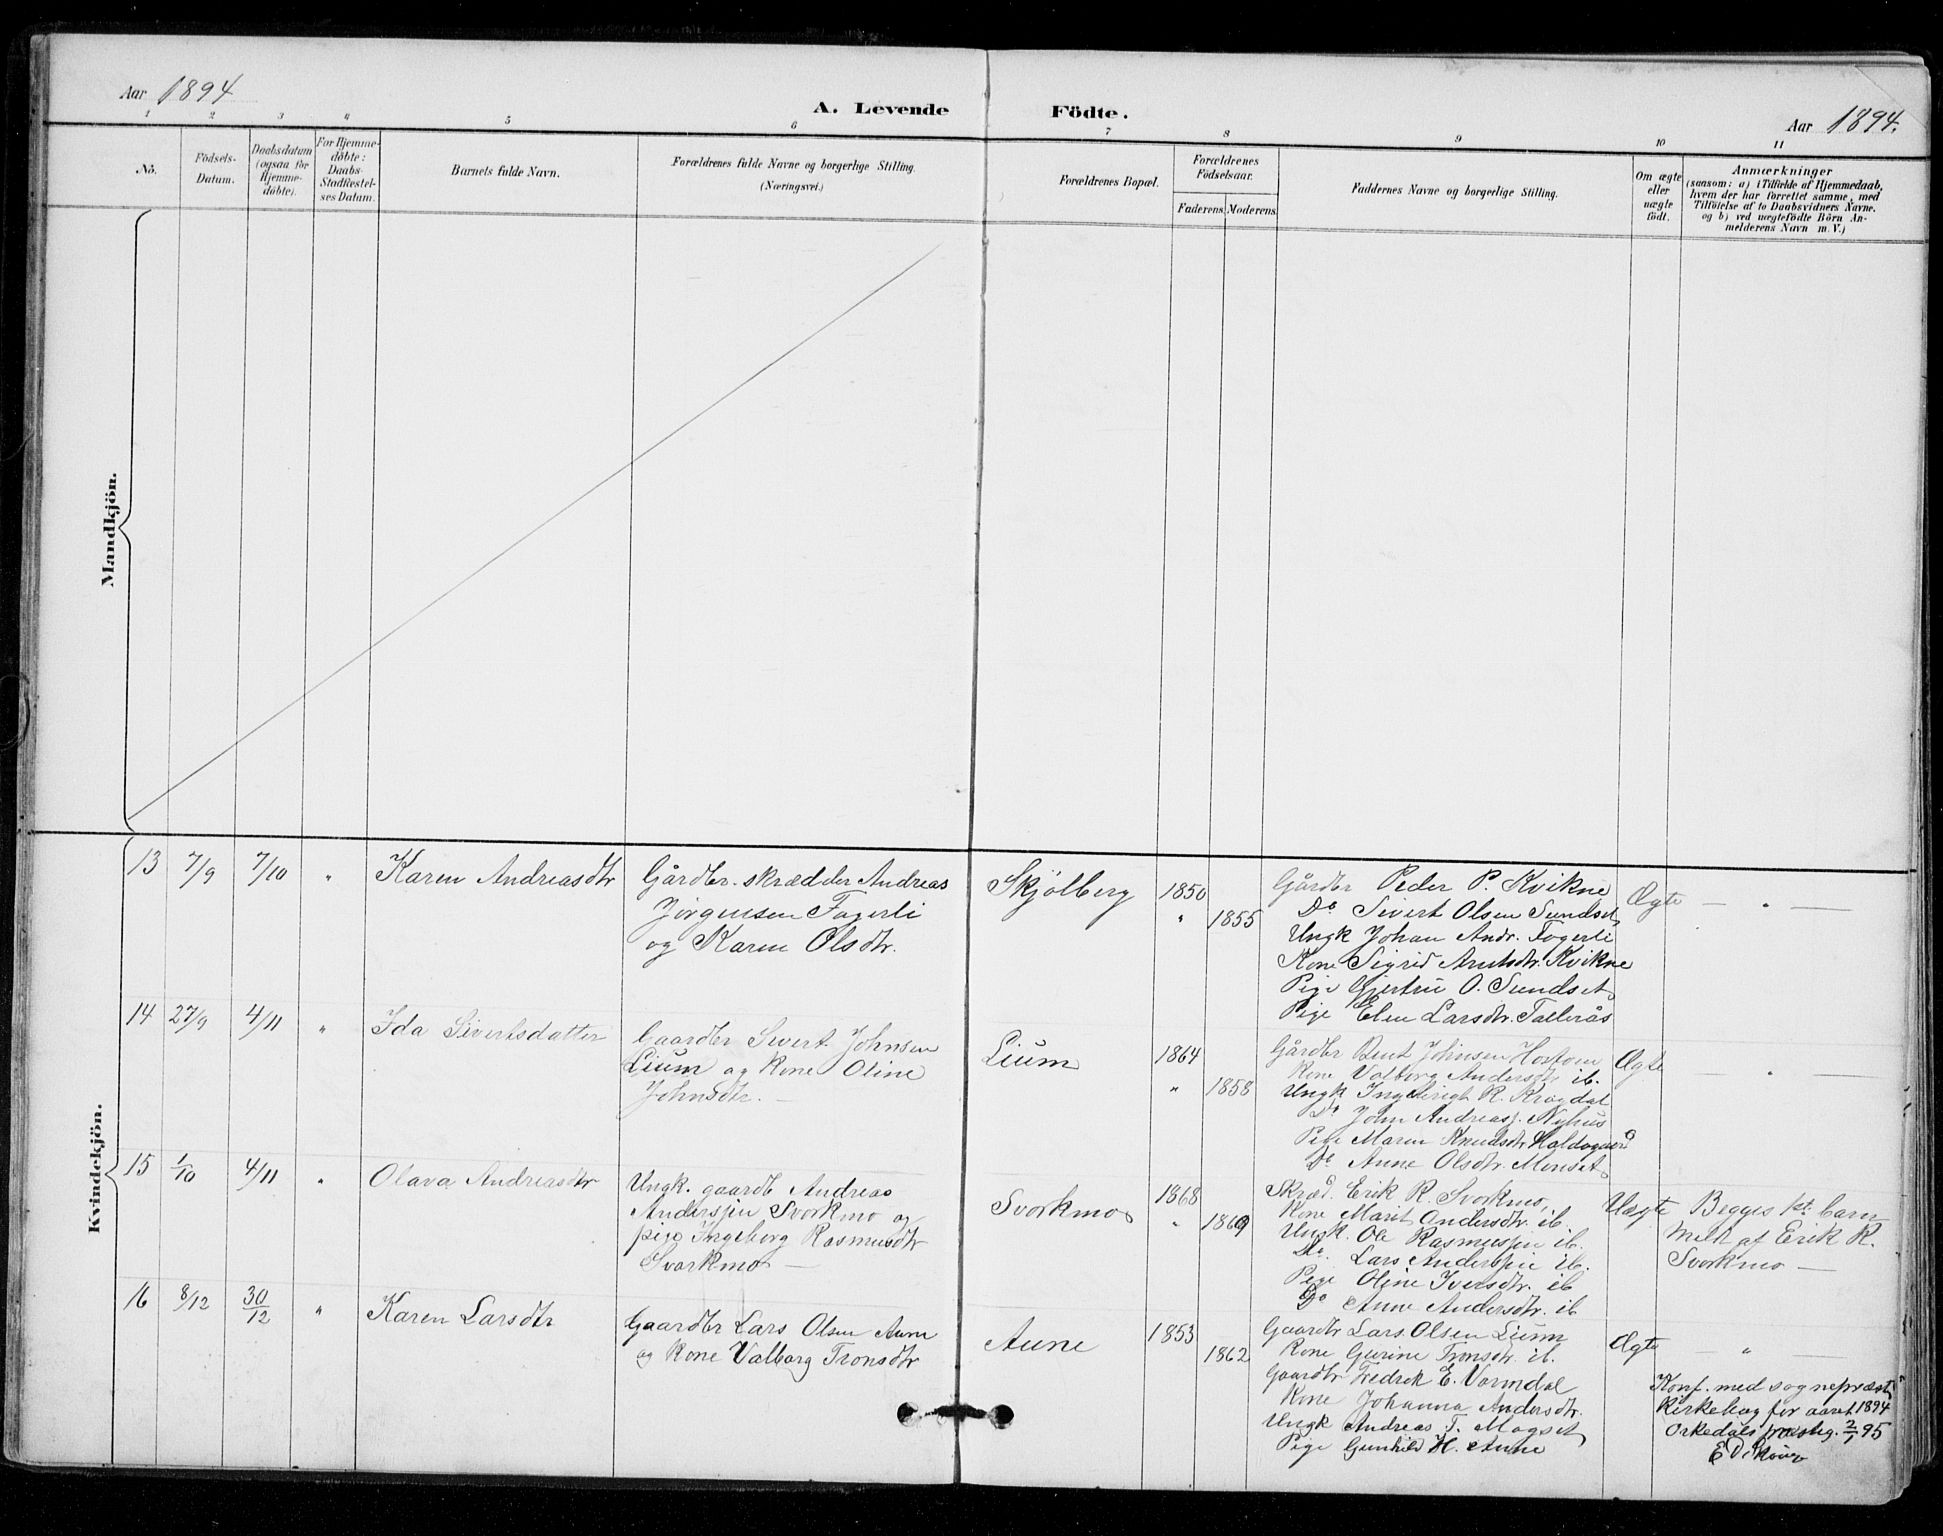 Aar 1894
A. Levende Födte.
Aar 1894.
1 2 3 4 5 6 7 8 9 10 11
No.
Födsels-
Datum.
Daabsdatum
(ogsaa for
Hjemme-
döbte).
For Hjemme-
döbte:
Daabs-
Stadfæstel-
ses Datum.
Barnets fulde Navn.
Forældrenes fulde Navne og borgerlige Stilling.
(Næringsvei.)
Forældrenes Bopæl.
Forældrenes
Födselsaar.
Faderens. Moderens.
Faddernes Navne og borgerlige Stilling.
Om ægte
eller
uægte
födt.
Anmærkninger
(saasom: a) i Tilfælde af Hjemmedaab,
hvem der har forrettet samme, med
Tilföielse af to Daabsvidners Navne,
og b) ved uægtefödte Börn An-
melderens Navn m. V.)
Mandkjön.
Kvindekjön.
13 7/9 7/10 " Karen Andreasdtr
Gårdbr. skrædder Andreas
Jörgensen Fagerli
og Karen Olsdtr.
Skjölberg
1850
" 1855
Gårdbr Peder P. Kvikne
Do Sivert Olsen Sundset
Ungk Johan Andr. Fagerli
Kone Sigrid Arntsdtr. Kvikne
Pige Gjertru O. Sundset
Pige Elen Larsdtr.
Ægte — " —
14 27/9 4/11 " Ida Sivertsdatter
Gaardbr Sivert Johnsen
Lium og Kone Oline
Johnsdtr. —
Lium
1864
" 1858
Gårdbr Bent Johnsen
Kone Valborg Andersdtr ib.
Ungk Ingebrigt R. Krogdal
Do John Andreass. Nyhus
Pige Maren Knudsdtr
Do Anne Olsdtr. Monset
Ægte — " —
15 1/10 4/11 " Olava Andreasdtr
Ungk. gaardb Andreas
Anderssen Svorkmo og
pige Ingeborg Rasmusdtr
Svorkmo —
Svorkmo
1868
" 1869
Skræd. Erik R. Svorkmo,
Kone Marit Andersdtr. ib.
Ungk. Ole Rasmussen ib.
Do. Lars Anderssen ib.
Pige Oline Iversdtr. ib
Do Anne Andersdtr. ib
Uægte
Begges 1st. barn
Meldt af Erik R.
Svorkmo —
16 8/12 30/12 " Karen Larsdtr
Gaardbr Lars Olsen Aune
og Kone Valborg Tronsdtr
Aune
1853
1862
Gaardbr Lars Olsen Lium
Kone Gurine Tronsdtr. ib.
Gaardbr Fredrek E. Vormdal
Kone Johanna Andersdtr.
Ungk Andreas T. Mogset
Pige Gunhild H. Aune
Ægte — " —
Konf. med sognepræst
Kirkebog for aaret 1894
Orkedals præsteg. 2/1 95